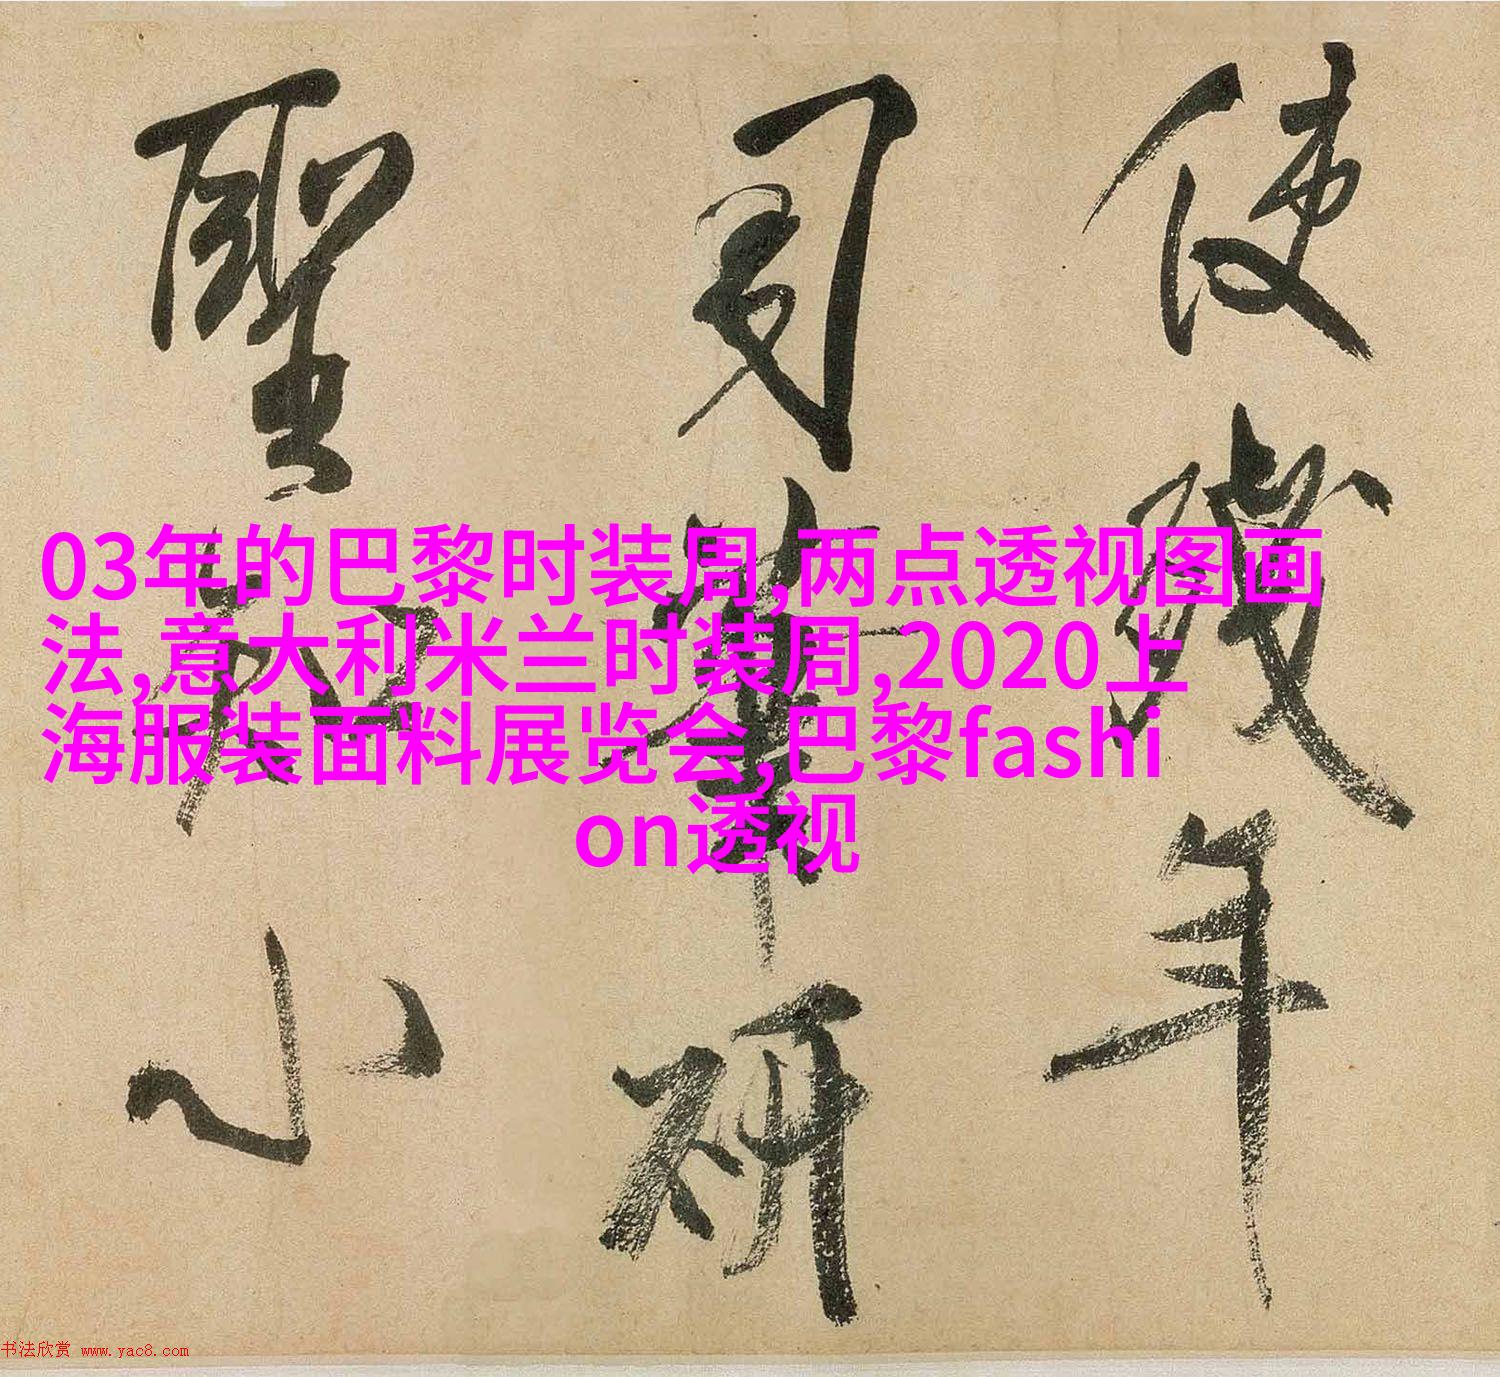 使殘年
研
聖
小
03年的巴黎时装周,两点透视图画
法,意大利米兰时装周,2020上
海服装面料展览会,巴黎fashi
on透视
书法欣赏 www.yac8.com